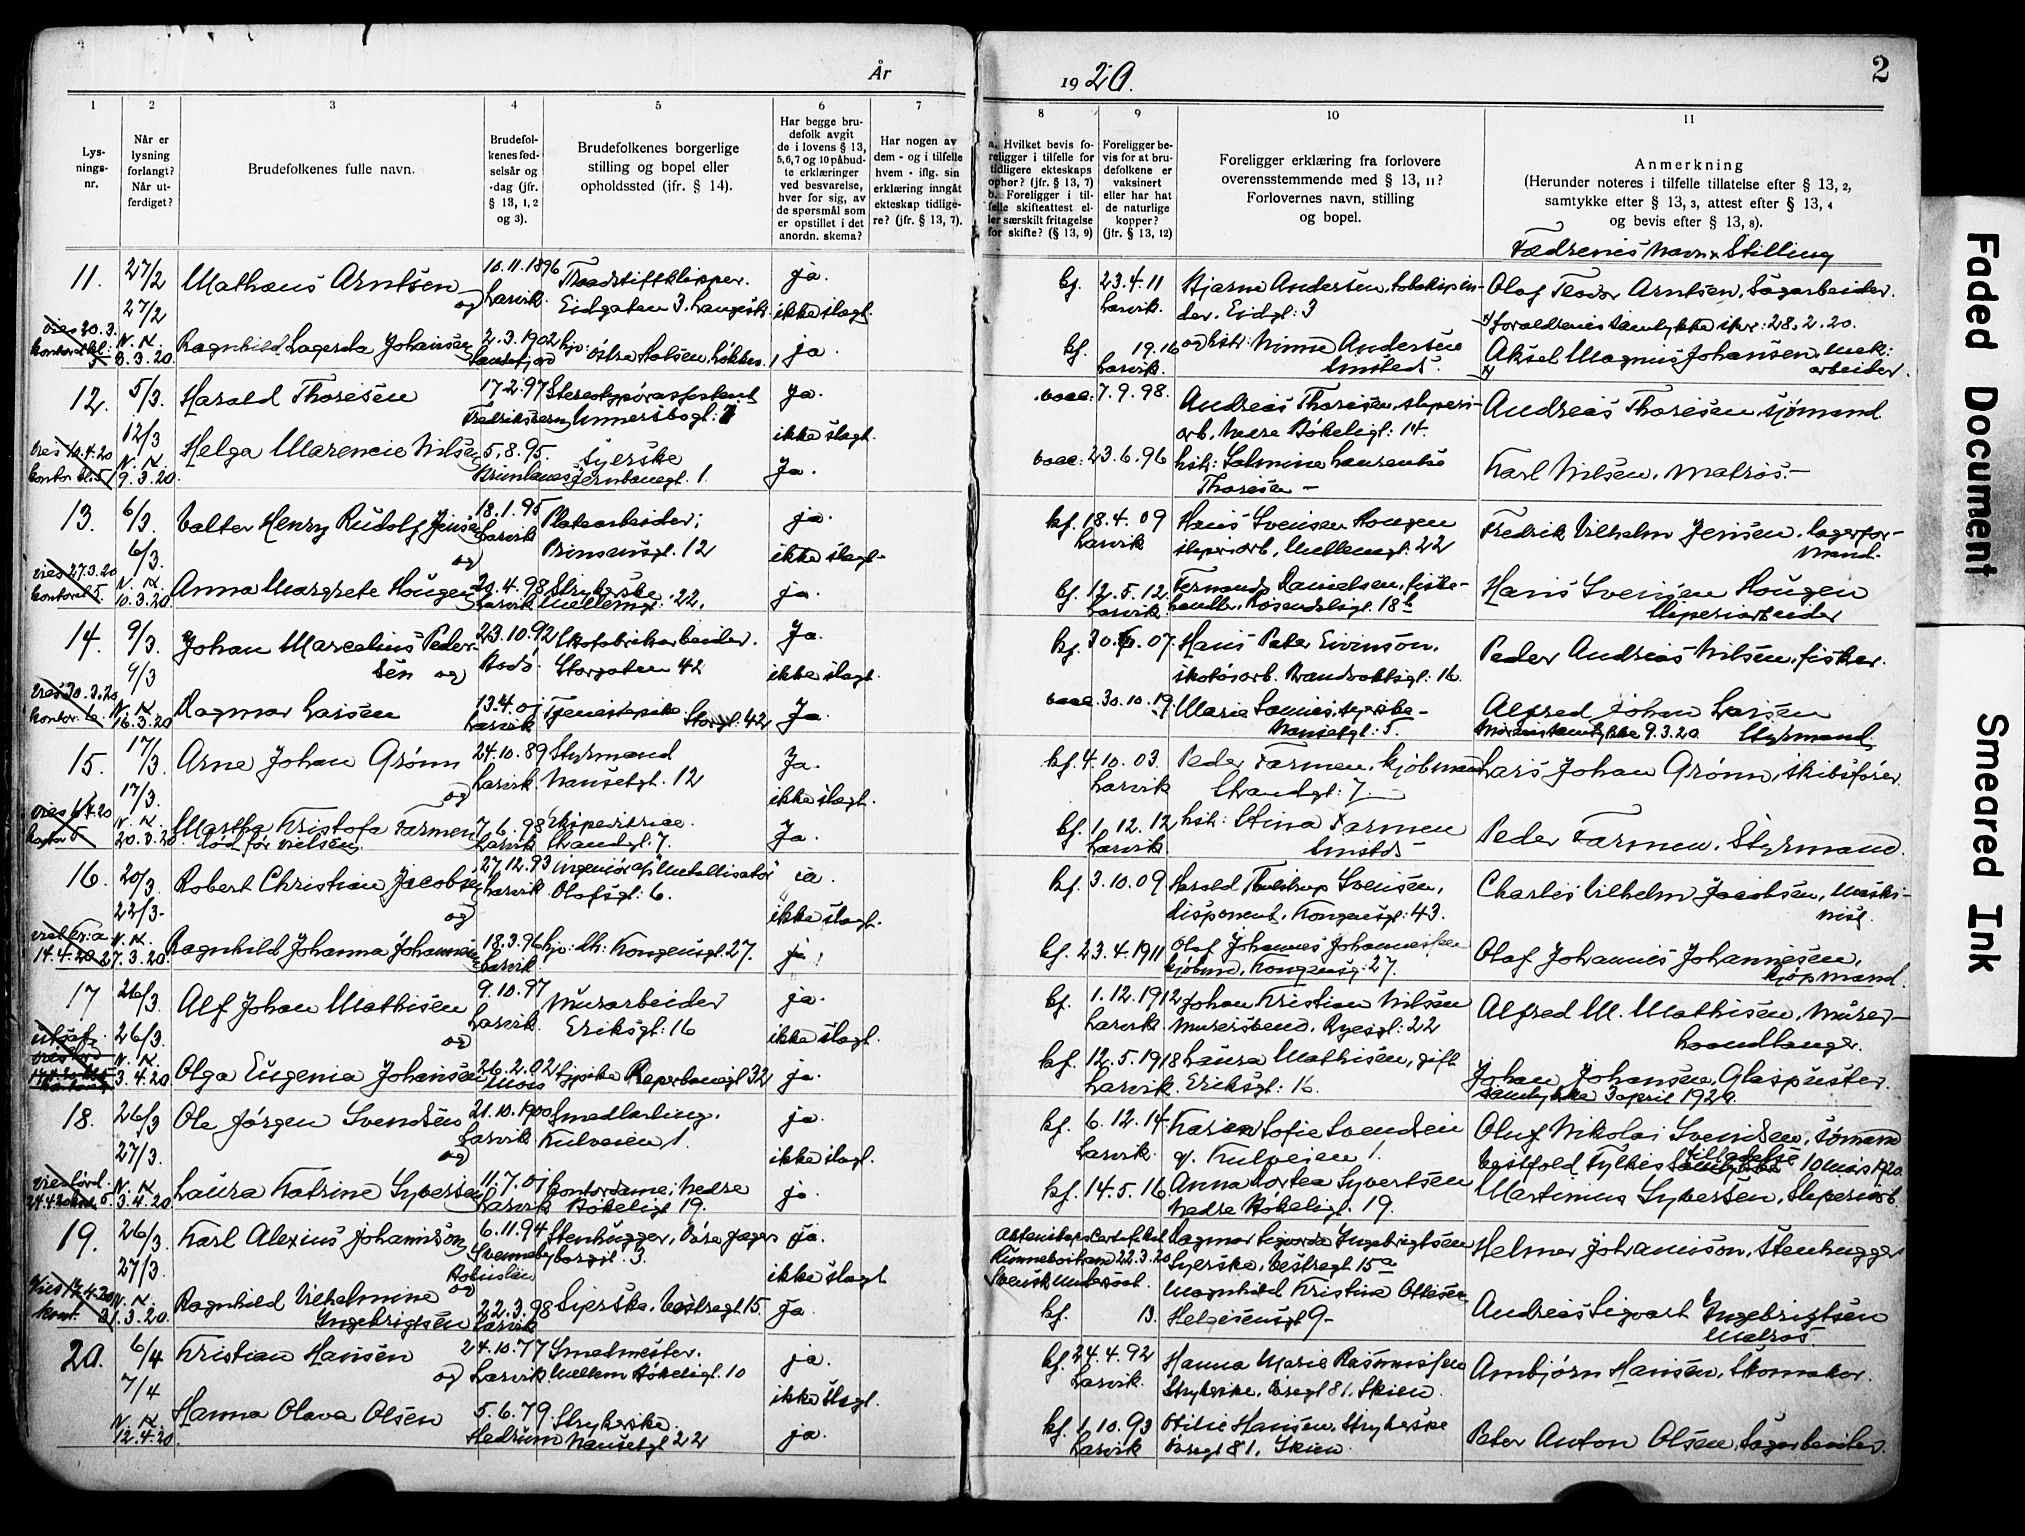 År
19 20.
2
1
2
3
4
5
6
7
8
9
10
11
Lys-
nings-
nr.
Når er
lysning
forlangt?
Når ut-
ferdiget?
Brudefolkenes fulle navn.
Brudefol-
kenes fød-
selsår og
-dag (jfr.
§ 13, 1, 2
og 3).
Brudefolkenes borgerlige
stilling og bopel eller
opholdssted (jfr. § 14).
Har begge bru-
defolk avgit
de i lovens § 13,
5,6,7 og 10 påbud-
te erklæringer
ved besvarelse,
hver for sig, av
de spørsmål som
er opstillet i det
anordn. skema?
Har nogen av
dem - og i tilfelle
hvem - iflg. sin
erklæring inngåt
ekteskap tidlige-
re? (jfr. § 13, 7).
a. Hvilket bevis fo-
religger i tilfelle for
tidligere ekteskaps
ophør? (jfr. § 13, 7)
b. Foreligger i til-
felle skifteattest el-
ler særskilt fritagelse
for skifte? (§ 13, 9)
Foreligger be-
vis for at bru-
defolkene er
vaksinert
eller har hat
de naturlige
kopper?
(jfr. § 13, 12)
Foreligger erklæring fra forlovere
overensstemmende med § 13, 11?
Forlovernes navn, stilling
og bopel.
Anmerkning
(Herunder noteres i tilfelle tillatelse efter § 13, 2,
samtykke efter § 13, 3, attest efter § 13, 4
og bevis efter § 13, 8).
Fædrenes navn & Stilling
11. 27/2 Mathæus Arntsen og 10.11.1896 Traadstiftklipper. ja.
27/2 Larvik. Eidgaten 3. Langesk. ikke slagt.
kf. 23.4.11 Bjarne Andersen,
Larvik. Eidgt: 3
Olaf Teodor Arntsen, Sagarbeider.
foraldrenes samtykke 28.2.20.
vies 20.3. N. N. Ragnhild Lagerta Johansen 2.3.1902 hjv: Østre Halsen, 1 ja
kontoret kl. 5 8.3.20 Sandefjord
kf. 19.16 og hst: Minne Andersen
Larvik. Smsteds.
Aksel Magnus Johansen, mek:
arbeider.
12. 5/3. Harald Thoresen 17.2.97 Stereotypørassistent Ja.
12/3 Fredriksvern Unnersbogt: 7 ikke slagt.
vacc. 7.9.98. Andreas Thoresen, sliperi-
arb. Nedre Bøkeligt: 14.
Andreas Thoresen, sjømand
vies 10.4.20 N. N. Helga Marencie Nilsen 5.8.95. Syerske Ja.
kontor kl. 5 9.3.20. Brunlanes Jernbanegt. 1.
vacc: 23.6.96 hst: Salmine Laurentse
Thoresen —
Karl Nilsen, Matros.—
13. 6/3. Valter Henry Rudolf Jensen og 18.1.95 Platearbeider; ja.
6/3. Larvik Prinsensgt. 12 ikke slagt.
kf. 18.4.09 Hans Svensen Hougen
Larvik sliperiarb, Mellemgt. 22
Fredrik Vilhelm Jensen, lagerfor-
mand.
vies 27.3.20 N. N. Anna Margrete Hougen 20.4.98 Strykerske ja.
kontoret 5. 10.3.20. Larvik Mellemgt: 22.
kf. 12.5.12. Fernando Danielsen, fiske-
Larvik handler, Rosendalsgt. 18 b
Hans Svensen Hougen
Sliperiarbeider
14. 9/3. Johan Marcelius Peder- 23.10.92 Skofabrikarbeider. Ja.
9/3 sen og Bodø. Storgaten 42 ikke slagt.
kf. 30.6.07. Hans Peter Eivinson,
skotøiarb. Brandvaktsgt: 16.
Peder Andreas Nilsen, fisker.
vies 30.3.20 N. N. Dagmar Larsen 13.4.01 Tjenestepike Storgt. 42 Ja
kontor. 6. 16.3.20 Larvik
vacc. 30.10.19. Marie
Nansetgt: 5.
Alfred Johan Larsen
Morens samtykke 9.3.20 Styrmand
15. 17/3. Arne Johan Grønn og 24.10.89 Styrmand Ja.
17/3. Larvik Nansetgt. 12 ikke slagt.
kf. 4.10.03. Peder Farmen, kjøbmand
Larvik Strandgt: 7.
Lars Johan Grønn, skibsfører
N. N. Martha Kristofa Farmen 7.6.98 Ekspeditrice. Ja.
20.3.20 Larvik Strandgt. 7.
kf. 1.12.12 hst: Stina Farmen
Larvik. Smstds
Peder Farmen, Styrmand.
16. 20/3. Robert Christian Jacobsen og 27.12.93 ingeniør a/s Metallisator ja.
22/3- Larvik Olafsgt: 6. ikke slagt.
kf. 3.10.09 Harald Thulstrup Svensen,
disponent, Kongensgt: 43.
Charles Vilhelm Jacobsen, Maski-
nist
N. N. Ragnhild Johanna Johannesen 18.3.96 hjv: th: Kongensgt. 27. ja.
14.4.20 27.3.20. Larvik
kf. 23.4.1911 Olaf Johannes Johannessen
kjøbm, Kongensg: 27.
Olaf Johannes Johannesen,
kjøpmand.
17 26/3. Alf Johan Mathisen og 9.10.97 Murarbeider ja.
26/3. Larvik. Eriksgt: 16 ikke slagt.
kf. 1.12.1912 Johan Kristian Nilsen
Larvik Murersvend, Ryesgt: 22
Alfred M. Mathisen, Murer-
haandlanger.
N. N. Olga Eugenia Johansen 26.2.02 Sypike Reperbanegt 32 ja.
3.4.20 Moss
kf. 12.5.1918 Laura Mathisen, gift
Larvik. Eriksgt: 16.
Johan Johansen, Glaspuster.
Samtykke 3 april 1920.
18. 26/3 Ole Jørgen Svendsen og 21.10.1900 Smedlærling. ja.
27/3. Larvik Kulveien 1. ikke slagt.
kf. 6.12.14 Karen Sofie Svendsen
Larvik. g. Kulveien 1.
Oluf Nikolai Svendsen, sømand
Vestfold Fylkes tilladelse 10 Mars 1920.
vies lørd. N. N. Laura Katrine Syversen 11.7.01 Kontordame; Nedre ja.
24.4.20 5. 3.4.20. Larvik Bøkeligt 19.
kf. 14.5.16 Anna Dortea Syvertsen
Nedre Bøkeligt. 19.
Martinius Syversen, Sliperiarb
19. 26/3. Karl Alexius Johanisson og 6.11.94 Stenhugger, Øvre Jæger- ja.
27/3. Svenneby borgst. 3. ikke slagt
Bohuslän
Kinneviken 22.3.20
Svensk undersaat.
Dagmar Sigvarda Ingebrigtsen
Syerske, Vestregt 15 a
Helmer Johanisson, Stenhugger
vies 17.4.20 N. N. Ragnhild Vilhelmine 22.3.98 Syerske, Vestregt. 15. ja.
kont. 31.3.20. Ingebrigtsen Larvik
kf. 13. Magnhild Kristine Ottesen
Helgesensgt 9—
Andreas Sigvart Ingebrigtsen
Matros.
20. 6/4 Kristian Hansen og 24.10.77 Smedmester. ja.
7/4 Larvik. Mellem Bøkeligt. 10 ikke slagt.
kf. 24.4.92 Hanna Marie Rasmussen
Larvik. Strykerske, 81, Skien.
Ambjørn Hansen, Skomaker.
N. N. Hanna Olava Olsen 5.6.79 Strykerske. ja.
12.4.20. Hedrum Nansetgt 22
kf. 1.10.93 Otilie Hansen, Strykerske
Larvik 81, Skien.
Peter Anton Olsen, Sagarbeider.
Faded Document
Smeared Ink